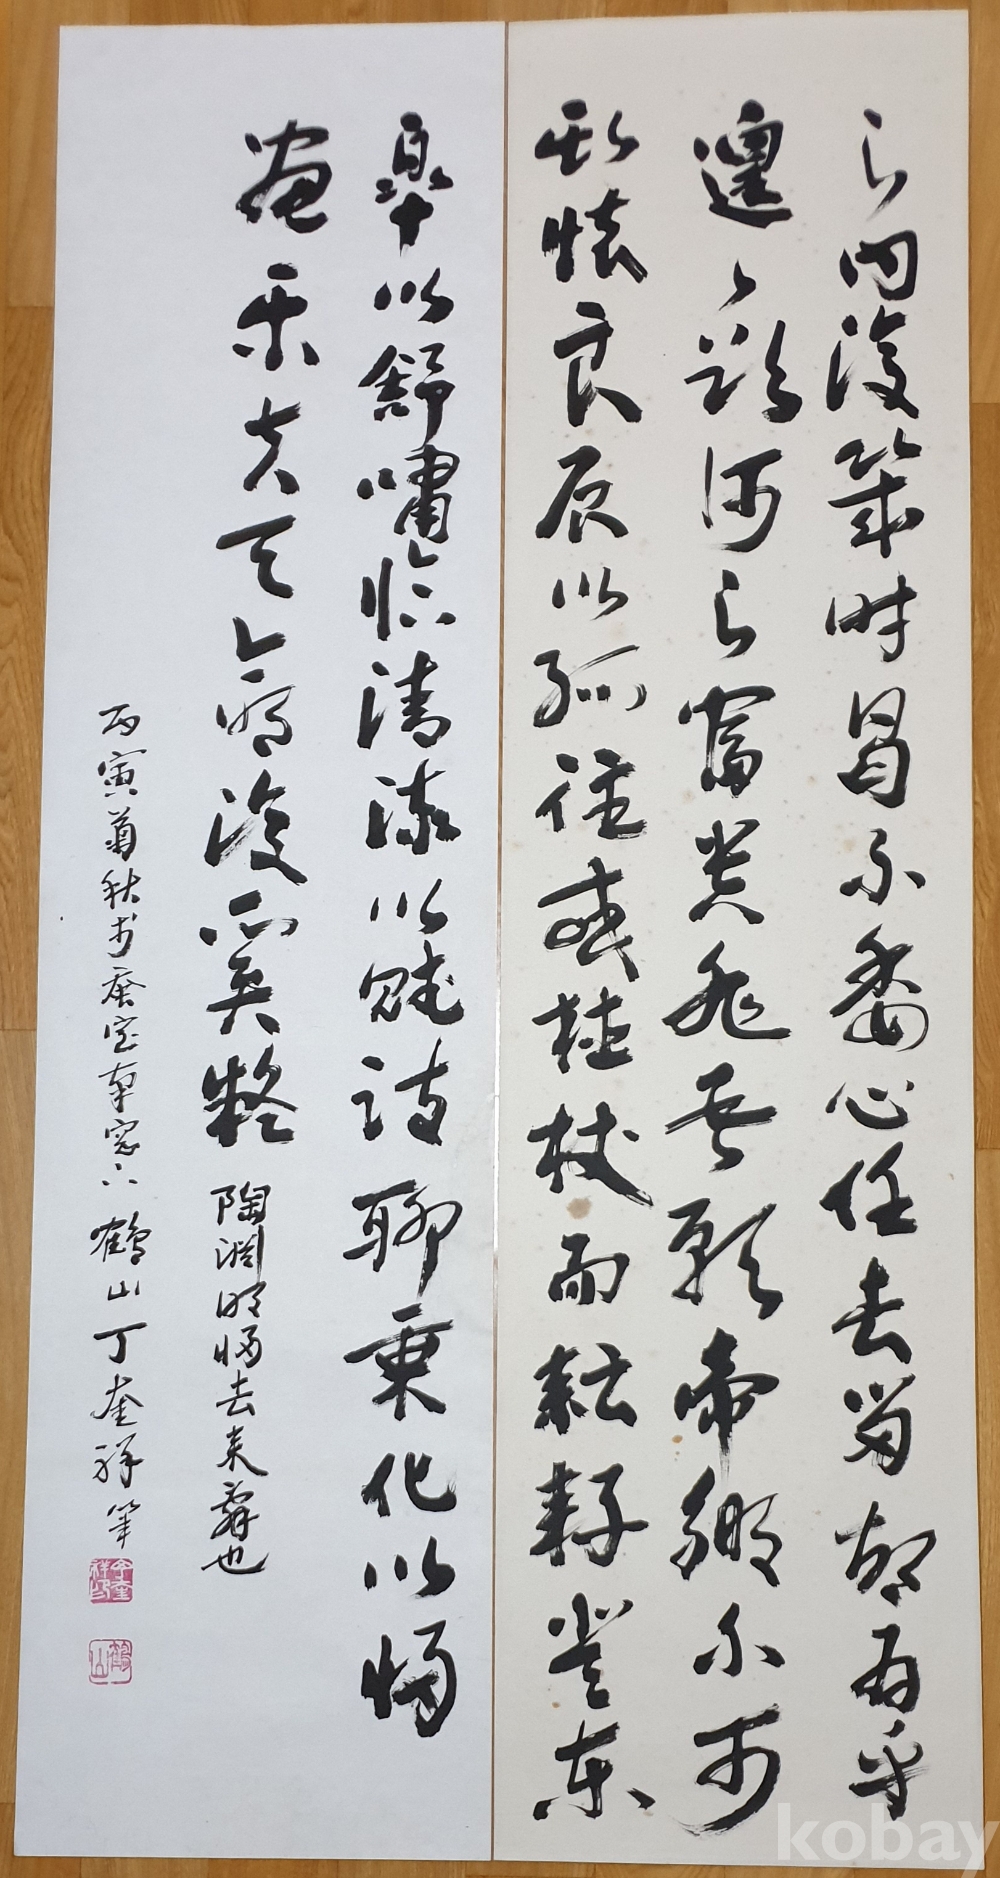 之內復幾時曷不委心任去留胡爲乎
遑〻欲何之富貴非吾願帝鄕不可
期懷良辰以孤往或植杖而耘耔登東
皐以舒嘯臨淸流以賦詩聊乘化以歸
盡樂夫天命復奚疑
陶淵明歸去來辭也
丙寅菊秋於 室南窓下 鶴山丁奎祥筆
丁奎祥印
鶴山
kobay